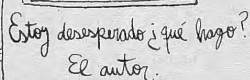 Estoy desesperado ¿qué hago?
El autor.